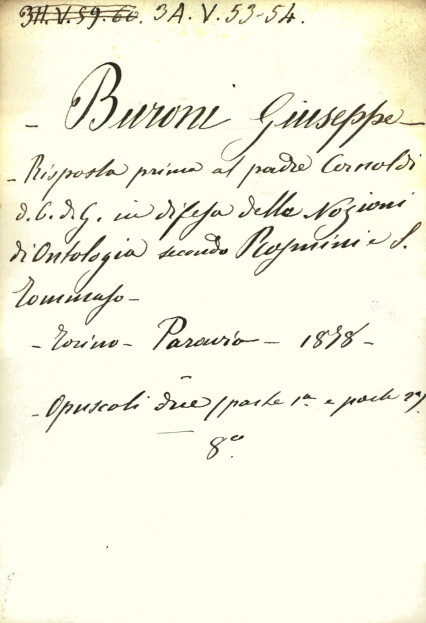 3H.V.59.60. 3A.V.53-54.
- Buroni Giuseppe -
- Risposta prima al padre Cornoldi
d.C.d.G. in difesa delle Nozioni
di Ontologia secondo Rosmini e S.
Tommaso -
- Torino - Paravia - 1878 -
- Opuscoli due (parte 1a e parte 2a)
8o.